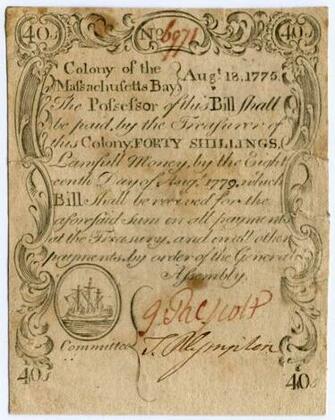 40s No 6971 40s
Colony of the
Massachusetts Bay } Augt. 18, 1775.
The Possessor of this Bill shall
be paid, by the Treasurer of
this Colony, FORTY SHILLINGS,
Lawfull Money, by the Eigh
teenth Day of Augt. 1779, which
Bill shall be received for the
aforesaid sum in all payments
at the Treasury, and in all other
payments, by order of the General
Assembly.
Committee
40s 40s